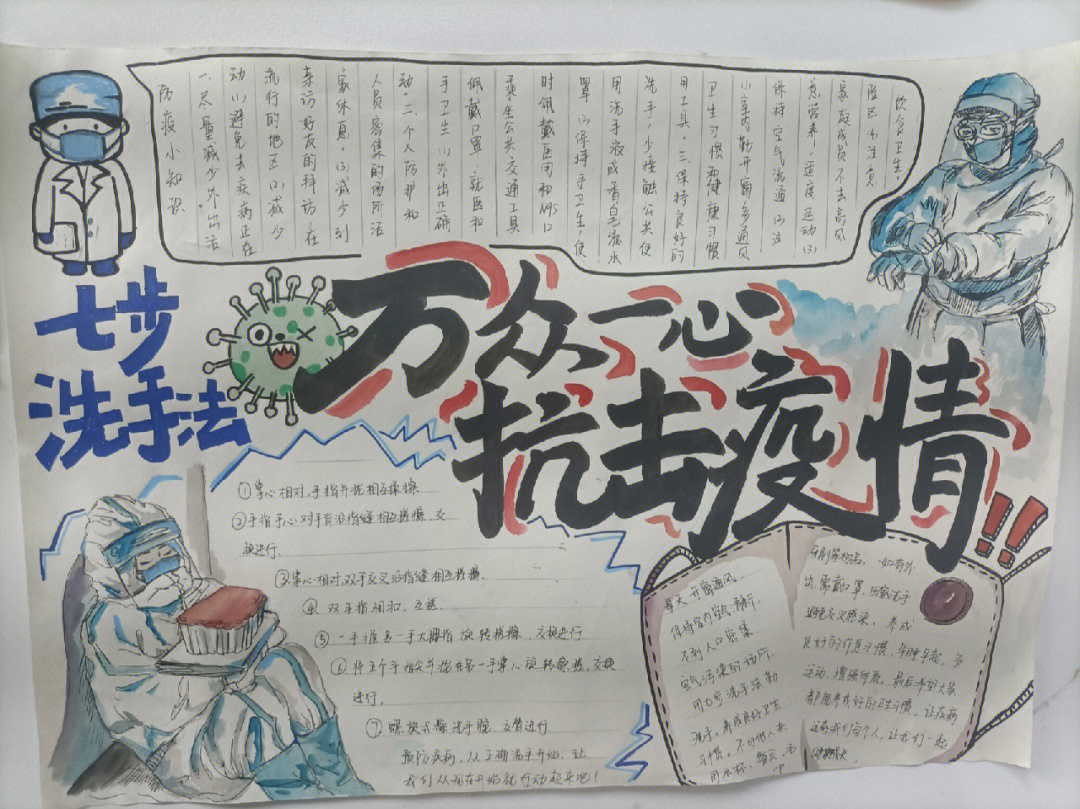 防疫小知识
一.尽量减少外出活
动(1)避免去疾病正在
流行的地区(2)减少
亲访好友的拜访,在
家休息,(3)减少到
人员密集的场所活
动.二.个人防护和
手卫生(1)外出正确
佩戴口罩.就医和
乘坐公共交通工具
时佩戴医用和N95口
罩(2)保持手卫生,使
用洗手液或香皂流水
洗手,少接触公共使
用工具.三.保持良好的
卫生习惯和健康习惯
(1)室内勤开窗多通风
保持空气流通(2)注
意营养,适度运动(3)
家庭成员不去高风
险区(4)注意
饮食卫生,
七步
洗手法
万众一心
抗击疫情!!
①掌心相对,手指并拢相互揉擦
②手指手心对手背沿指缝相互揉搓,交
换进行.
③掌心相对双手交叉沿指缝相互揉搓.
④双手指相扣,互搓
⑤一手握另一手大拇指旋转揉搓,交换进行
⑥将五个手指尖并拢在另一手掌心旋转揉搓,交换
进行,
⑦螺旋式擦洗手腕,交替进行
预防疾病,从正确洗手开始,让
我们从现在开始就行动起来吧!
每天开窗通风,
保持室内空气清新,
不到人口密集
空气污染的场所.
用七步洗手法勤
洗手,养成良好卫生
习惯,不与他人共
用水杯、
牙刷等物品,如有外
出,需戴口罩,回家洗手
避免交叉感染,养成
良好的作息习惯,早睡早起,多
运动,增强体质,最后希望大家
都能养成好的卫生习惯,让疾病
远离我们每个人,让我们一起